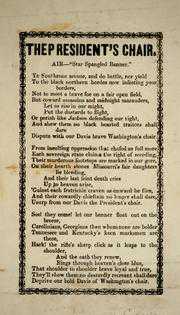 THE PRESIDENT'S CHAIR.
AIR—"Star Spangled Banner."
Ye Southrons arouse, and do battle, nor yield
To the black northern hordes now infesting your
borders,
Not to meet a brave foe on a fair open field,
But coward assassins and midnight marauders,
Let us rise in our might,
Put the dastards to flight,
Or perish like Jackson defending our right,
And show them no black hearted traitors shall
dare
Dispute with our Davis brave Washington's chair.
From insulting oppression that chafed us full sore
Each sovereign state claims the right of seceding,
Their murderous footsteps are marked in our gore,
On their hearth stones Missouri's fair daughters
lie bleeding,
And their last faint death cries
Up to heaven arise,
'Gainst each fratricide craven as onward he flies,
And their cowardly chieftain no longer shall dare
Usurp from our Davis the President's chair.
See! they come! let our banner float out on the
breeze,
Carolinians, Georgians than whom none are bolder
Tennessee and Kentucky's keen marksmen are
there,
Hark! the rifle's sharp click as it leaps to the
shoulder,
And the oath they renew,
Rings through heaven's clear blue,
That shoulder to shoulder brave loyal and true,
They'll show them no dastardly recreant shall dare
Deprive our bold Davis of Washington's chair.